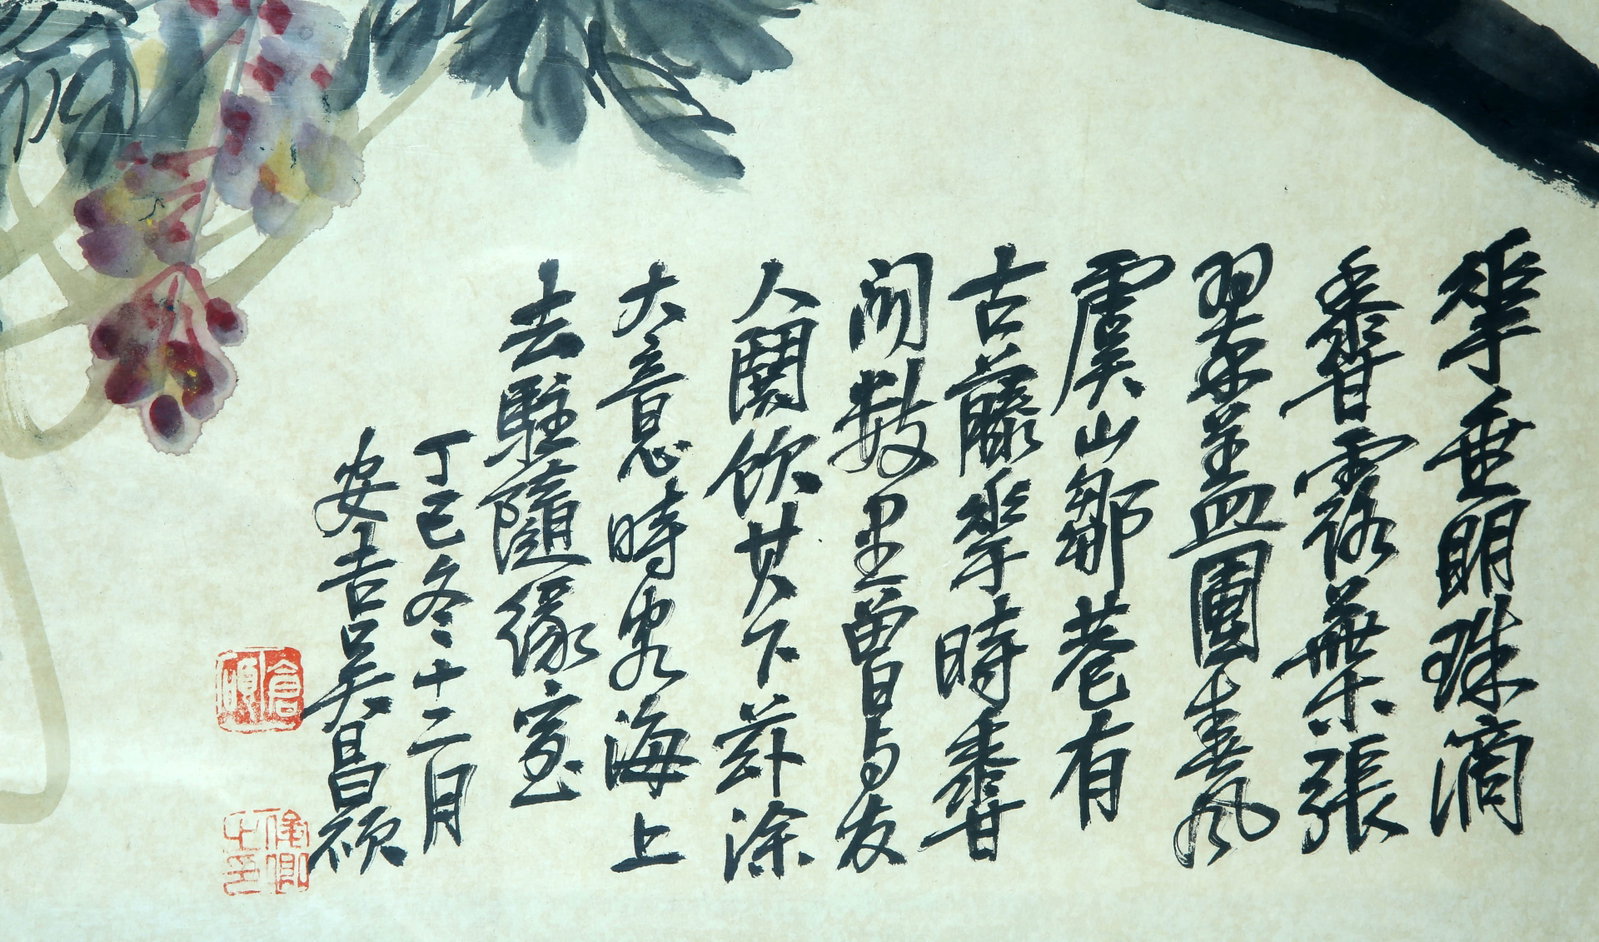 華垂明珠滴
香露葉張
翠蓋團春風
虞山鄒巷有
古藤華時香
聞數里曾與友
人鬪飲其下茲涂
大意時客海上
去駐隨緣室
丁巳冬十二月
安吉吳昌碩
倉碩
俊卿之印